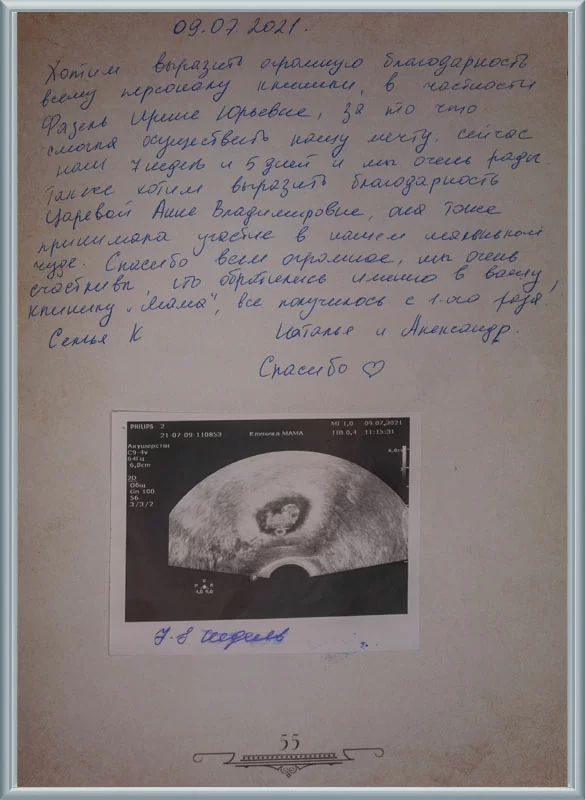 09.07.2021.
Хотим выразить огромную благодарность
всему персоналу клиники, в частности
Фазель Ирине Юрьевне, за то что
смогла осуществить нашу мечту, сейчас
нам 7 недель и 5 дней и мы очень рады.
Также хотим выразить благодарность
Царевой Анне Владимировне, она тоже
принимала участие в нашем маленьком
чуде. Спасибо всем огромное, мы очень
счастливы, что обратились именно в вашу
клинику „Мама", все получилось с 1-ого раза!
Семья К Наталья и Александр.
Спасибо ♡
PHILIPS 2 MI 1,0 09.07.2021
21-07-09-110853 Клиника МАМА TIB 0,4 11:15:31
Акушерстви
C9-4v
64Гц
6,0cm
6,0cm
2D
Общ
Gn 100
56
3/3/2
7-8 недель
55